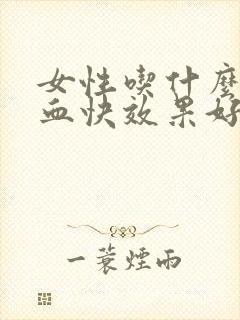 女性喫什麼
血快效果好
一蓑煙雨